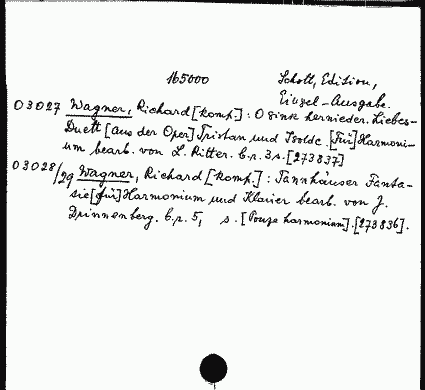 165000 Schott, Edition,
Einzel-Ausgabe.
03027 Wagner, Richard [komp.]: O sink hernieder. Liebes-
Duett [aus der Oper] Tristan und Isolde. [Für] Harmoni-
um bearb. von L. Ritter. b.r. 3 s. [273837]
03028/29 Wagner, Richard [komp.]: Tannhäuser Fanta-
sie [für] Harmonium und Klavier bearb. von J.
b.r. 5, s. [Pouze harmonium]. [273836].